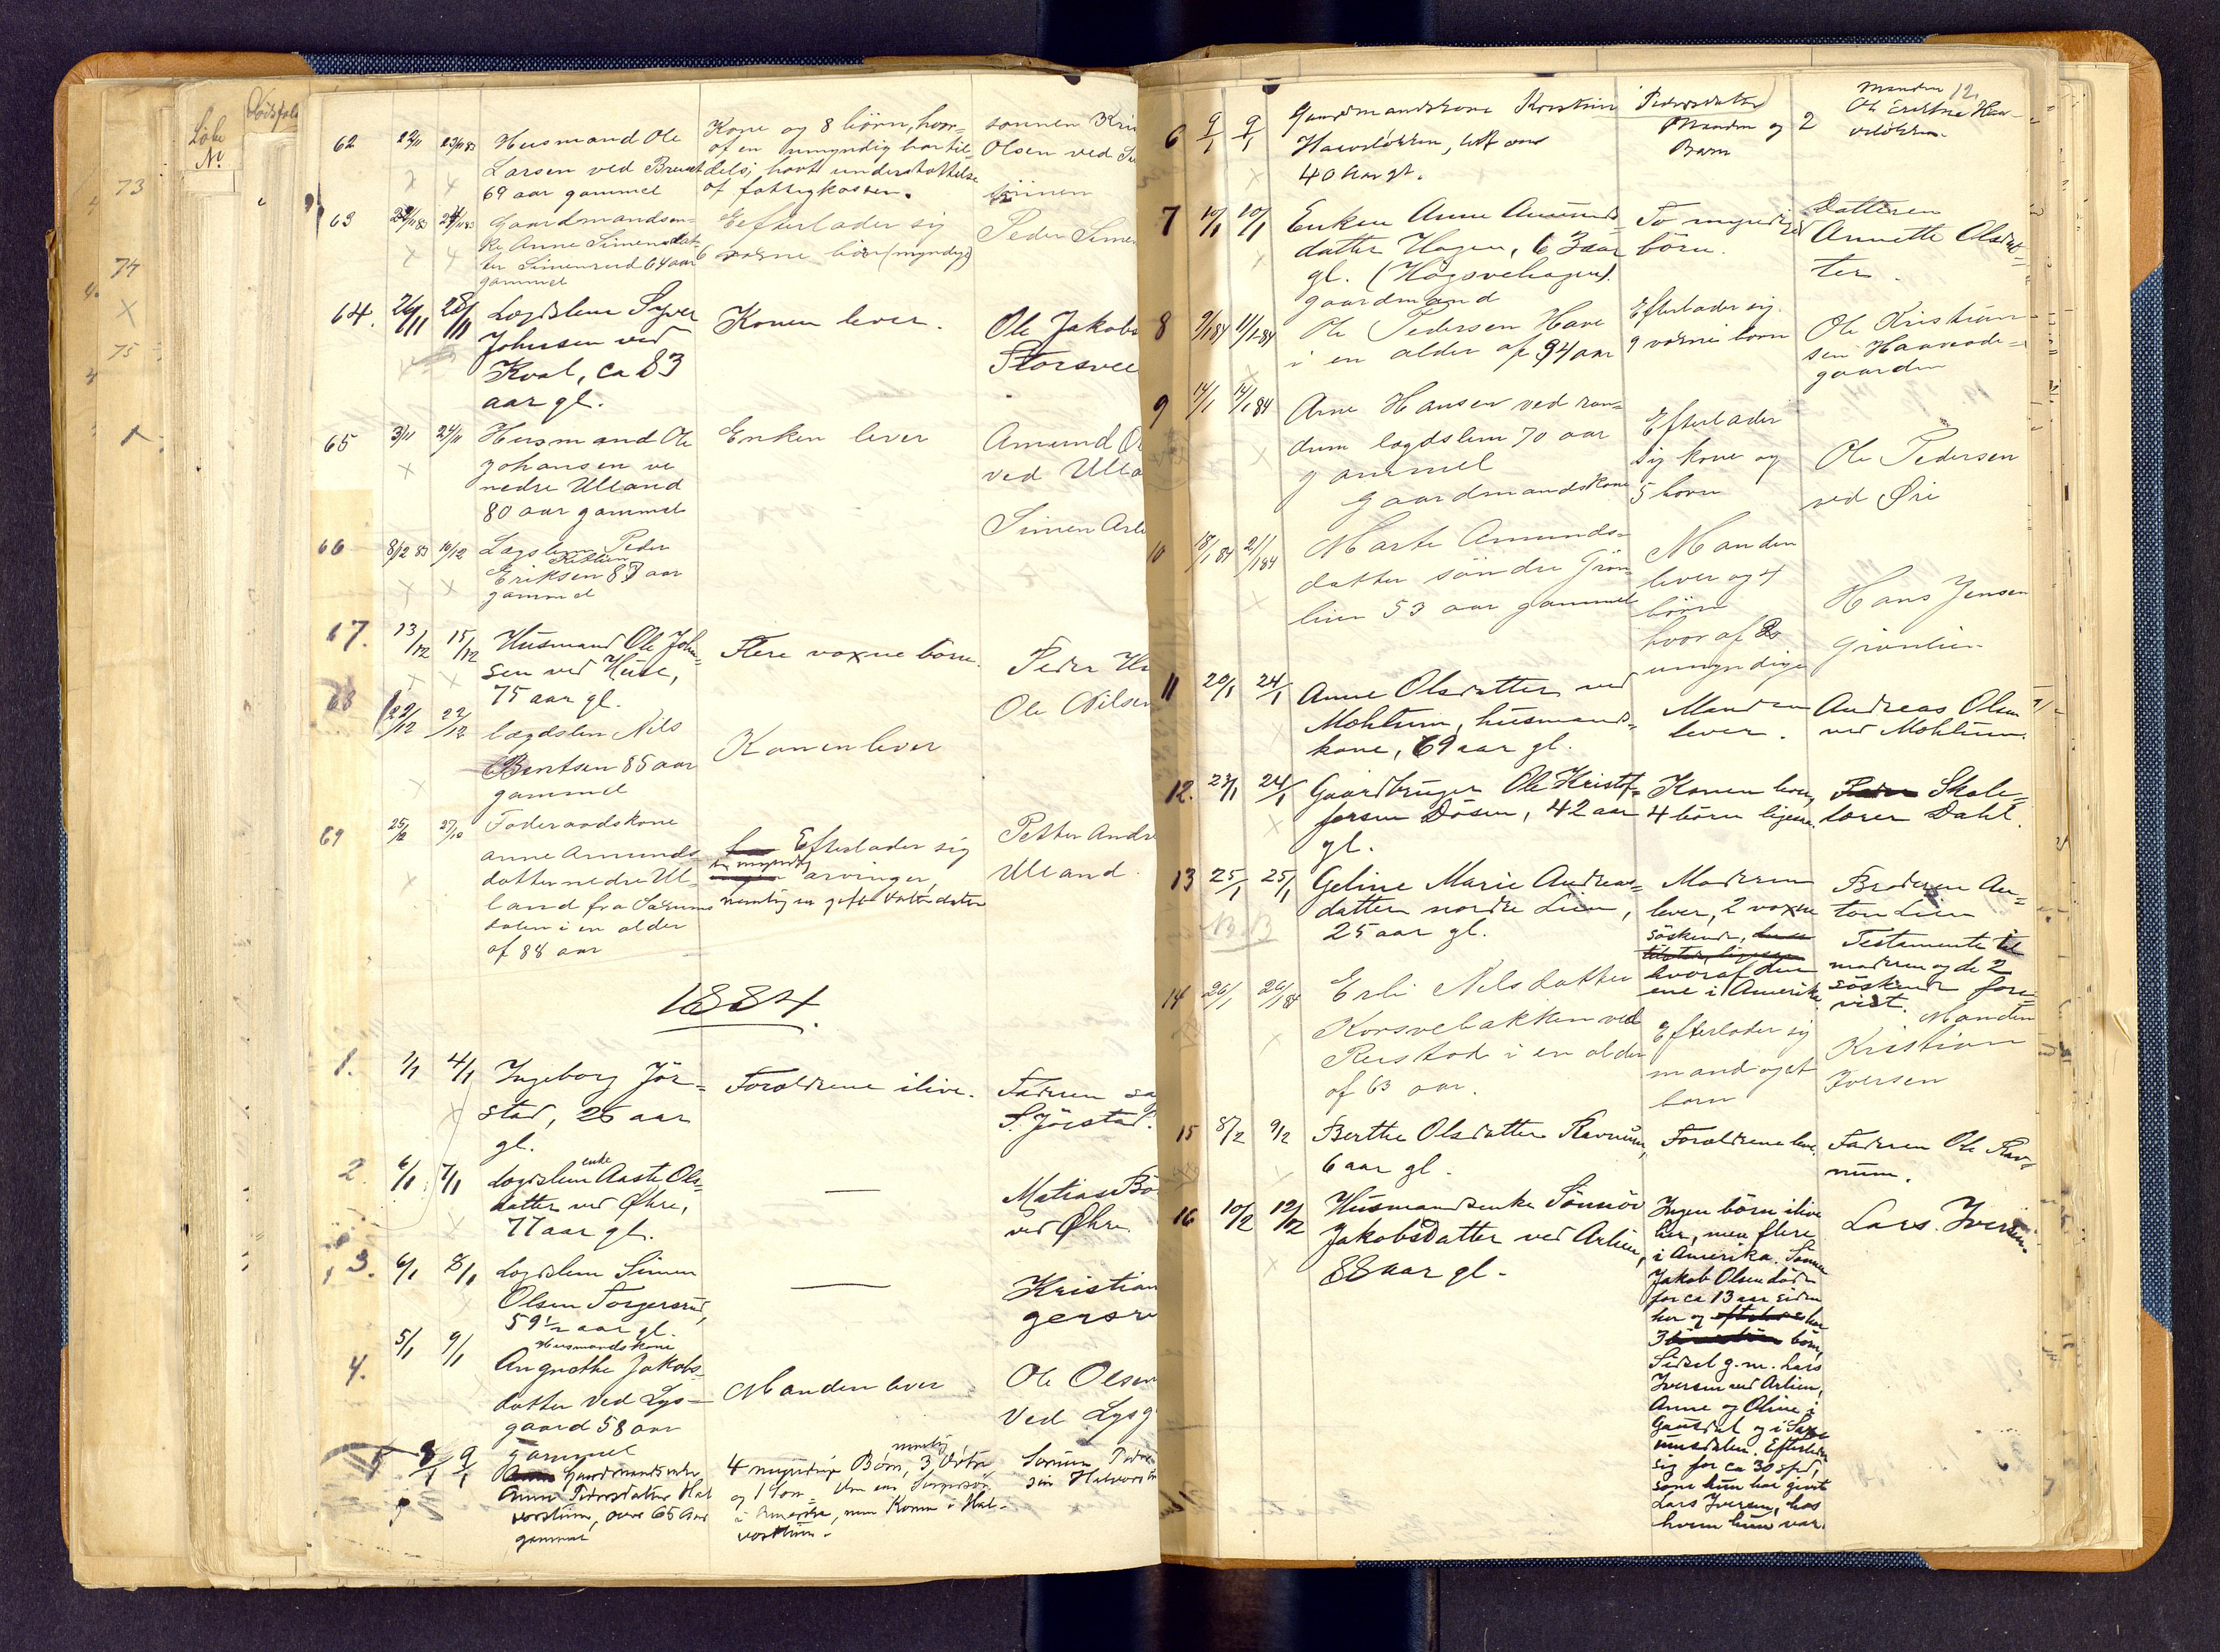 Løbe
No.
Dødsfald
73
74
75
62 22/11 23/11 83 Husmand Ole
Larsen ved Brust
69 aar gammel
Kone og 8 børn, hvor-
af en umyndig har til-
dels, havt understøttelse
af fattigkassen.
sønnen Kri
Olsen ved
63 Gaardmandsen-
ke Anne Simensdat-
ter Simenrud 64 aar
gammel
Eefterlader sig
6 voxne børn (myndige)
Peder Simen
64. 26/11 28/11 Logdslem Syver
Johnsen ved
Kval, ca 83
aar gl.
Konen lever.
Ole Jakobs
Storsvee
65 3/11 24/11 Husmand Ole
Johansen ve
nedre Ulland
80 aar gammel
Enken lever
Amund
ved Ulla
66 8/12 83 10/12 Lægslem Peder
Eriksen 87 aar
gammel
Simen Arli
67. 13/12 15/12 Husmand Ole John-
sen ved Huse,
75 aar gl.
Flere voxne børn.
Peder
68 22/12 22/12 lægdslem Nils
Berntsen 85 aar
gammel
Konen lever
Ole Nilsen
69 25/12 27/12 Føderaadskone
Anne Amunds
datter nedre Ul-
land fra
dalen i en alder
af 88 aar
Efterlader sig
en myndig
arvinger
nemlig en gift datter
Petter Andr
Ulland.
1884.
1. 1/1 4/1 Ingeborg Jör-
stad, 26 aar
gl.
Forældrene ilive.
Faderen
S. Jörstad.
2. 6/1 7/1 Logdslem enke Aaste Ols-
datter ved Øhre,
77 aar gl.
—
Matias Bø
ved Øhre
3. 6/1 8/1 Logdslem Simen
Olsen Torgersrud,
59 1/2 aar gl.
—
Kristian
gersru
4. 5/1 9/1 Husmandskone
Angnethe Jakobs-
datter ved Lys-
gaard 58 aar
gammel
Manden lever
Ole Olsen
Ved Lysg
8/1 9/1 Gaardmandsenke
Anne Pedersdatter Hal
vorstuen, over 65 Aar
gammel
4 myndige Børn, nemlig 3 Døtre
og 1 Søn
i Amerika, men Konen i Hal-
vorstuen.
12.
6 9/1 9/1 Gaardmandskone Kristine Pedersdatter
40 Aar gl.
Manden og 2
Børn
Manden
7 10/1 10/1 Enken Anne Amunds
datter Hagen, 63 aar
gl. (Høgsvehagen).
To myndige
børn.
Datteren
Annette Olsdat-
ter.
8 9/1 84 11/1 84 gaardmand
Ole Pedersen Have
i en alder af 94 aar
Efterlader sig
9 voxne børn
Ole Kristian-
sen Haavaade-
gaarden
9 14/1 14/1 84 Arne Hansen ved ran-
dum lægdslem 70 aar
gammel
Efterlader
sig kone og
5 børn
Ole Pedersen
ved Øri
10 18/1 84 21/1 84 gaardmandskone
Marte Amunds-
datter søndre Grøn-
lien 53 aar gammel
Manden
lever og 4
børn
hvoraf 2
umyndige
Hans Jensen
Grønlien
11 20/1 24/1 Anne Olsdatter ved
Mohlum, husmands-
kone, 69 aar gl.
Manden
lever.
Andreas Olsen
ved Mohlum.
12. 23/1 24/1 Gaardbruger Ole Kristof-
fersen Døsen, 42 aar
gl.
Konen lever,
4 børn ligesaa.
Skole-
lærer Dahl.
13 25/1 25/1 Geline Marie Andreas-
datter nordre Lien,
25 aar gl.
NB
Moderen
lever, 2 voxne
søskende,
hvoraf den
ene i Amerika
Broderen An-
ton Lien
Testamente til
moderen og de 2
søskende fore-
vist.
14 26/1 26/1 84 Erli Nilsdatter
Korsvebakken ved
Rustad i en alder
af 63 aar.
Efterlader sig
mand og et
barn
Manden
Kristian
Iversen
15 8/2 9/2 Berthe Olsdatter Ravnum,
6 aar gl.
Forældrene lever.
Faderen Ole Rav-
num.
16 10/2 12/2 Husmandsenke Sønnøv
Jakobsdatter ved Arlien,
88 aar gl.
Ingen børn ilive
her, men flere
i Amerika. Sønnen
Jakob Olsen døde
for ca 13 aar siden
her og
3 børn,
Sidsel g.m. Lars
Iversen ved Arlien,
Anne og Oline i
Gausdal og i
Efterlader
sig for ca 30 spd,
som hun har givet
Lars Iversen, hos
hvem hun var.
Lars Iversen.